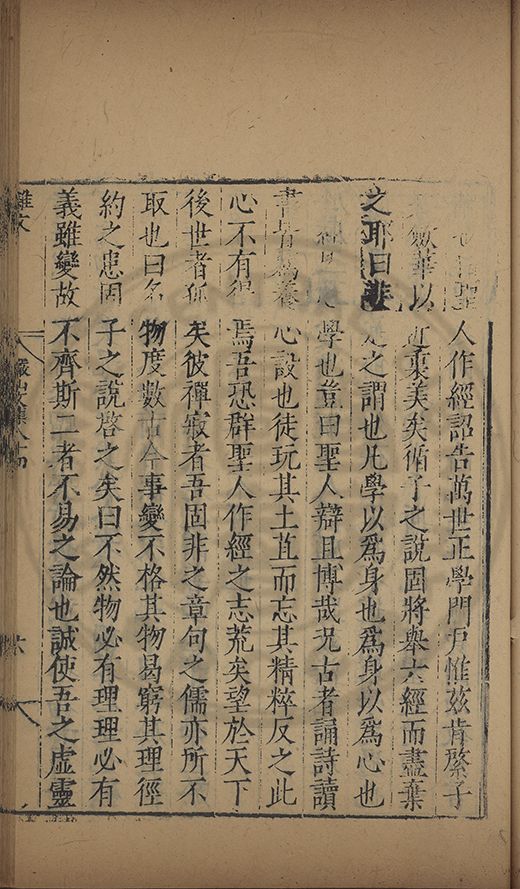 聖人作經詔告萬世正學門戶惟茲肯綮子
數華以近裒美矣循子之說固將舉六經而盡棄
之耶曰非是之謂也凡學以爲身也爲身以爲心也
學也豈曰聖人辯且博哉况古者誦詩讀
書皆爲養心設也徒玩其土苴而忘其精粹反之此
心不有得焉吾恐群聖人作經之志荒矣望於天下
後世者孤矣彼禪寂者吾固非之章句之儒亦所不
取也曰名物度數古今事變不格其物曷窮其理徑
約之患固子之說啓之矣曰不然物必有理理必有
義雖變故不齊斯二者不易之論也誠使吾之虛靈
雜文
六